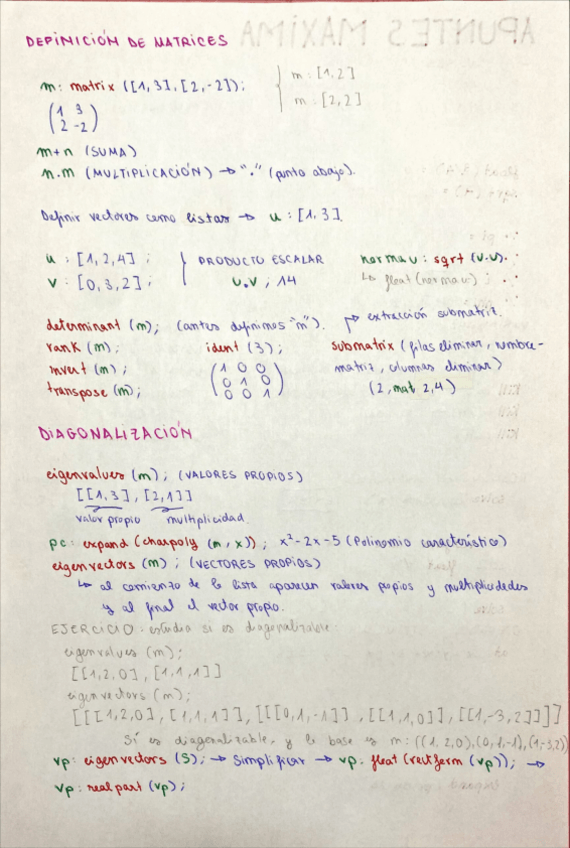 APUNTES MAXIMA
DEFINICIÓN DE MATRICES
m: matrix ([1,3],[2,-2]);
m:[1,2]
m:[2,2]
(1 3
2 -2)
m+n (SUMA)
n.m (MULTIPLICACIÓN) → "." (punto abajo).
Definir vectores como listas → u:[1,3].
u:[1,2,4]; PRODUCTO ESCALAR norma u: sqrt (v.v).
v:[0,3,2]; u.v ; 14 ↳ float(norma u);
determinant (m); (antes definimos "m"). → extracción submatriz.
rank (m); ident (3); submatrix (filas eliminar, nombre-
invert (m); (1 0 0 matriz, columnas eliminar)
0 1 0
transpose (m); 0 0 1) (2, mat 2,4)
DIAGONALIZACIÓN
eigenvalues (m); (VALORES PROPIOS)
[[1,3],[2,1]]
valor propio multiplicidad.
pc: expand (charpoly (m,x)); x²-2x-5 (Polinomio característico)
eigenvectors (m); (VECTORES PROPIOS)
↳ al comienzo de la lista aparecen valores propios y multiplicidades
y al final el vector propio.
EJERCICIO: estudia si es diagonalizable:
eigenvalues (m);
[[1,2,0],[1,1,1]]
eigenvectors (m);
[[[1,2,0],[1,1,1]],[[[0,1,-1]],[[1,1,0]],[[1,-3,2]]]]
Sí es diagonalizable, y la base es m:((1,2,0),(0,1,-1),(1,-3,2))
vp: eigenvectors (S); → Simplificar → vp: float (rectform (vp)); →
vp: realpart (vp);